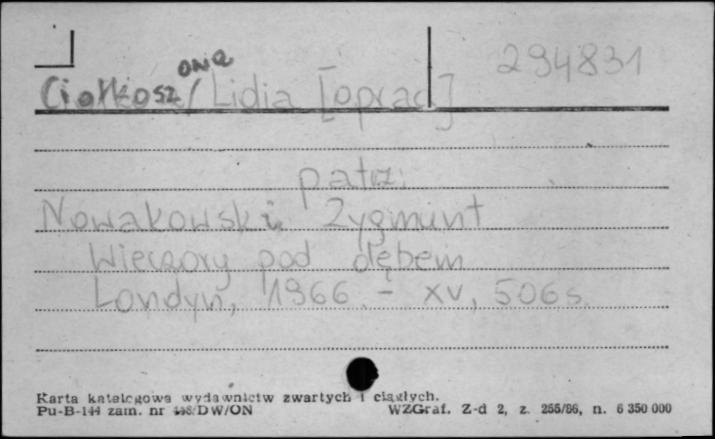 294831
Ciołkosz/owa Lidia [oprac]
patrz:
Nowakowski, Zygmunt
Wieczory pod dębem
Londyn, 1966. - XV, 506 s.
Karta katalogowa wydawnictw zwartych i ciągłych.
Pu-B-144 zam. nr 448/DW/ON WZGraf. Z-d 2, z. 255/86, n. 6 350 000